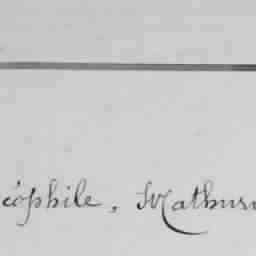 éophile, Mathurin